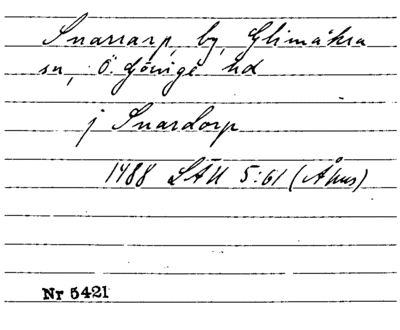 Snarrarp, by, Glimåkra
sn, Ö. Göinge hd
j Snardorp
1488 LÄU 5:61 (Åhus)
Nr 5421